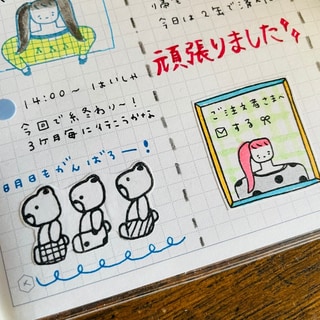 今日は2年で済んだ
頑張りました!!
14:00〜 はいしゃ
今回で終わり〜!
3ヶ月毎に行こうかな
明日もがんばろー!
ご注文者さまへ
✉する